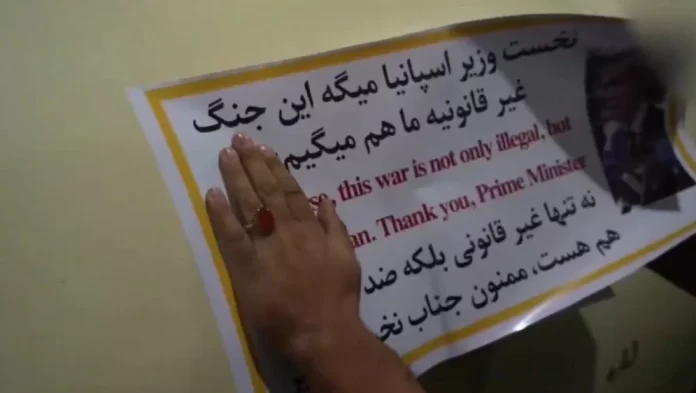 نخست وزیر اسپانیا میگه این جنگ
غیر قانونیه ما هم میگیم
this war is not only illegal, but
Thank you, Prime Minister
نه تنها غیر قانونی بلکه ضد
هم هست، ممنون جناب